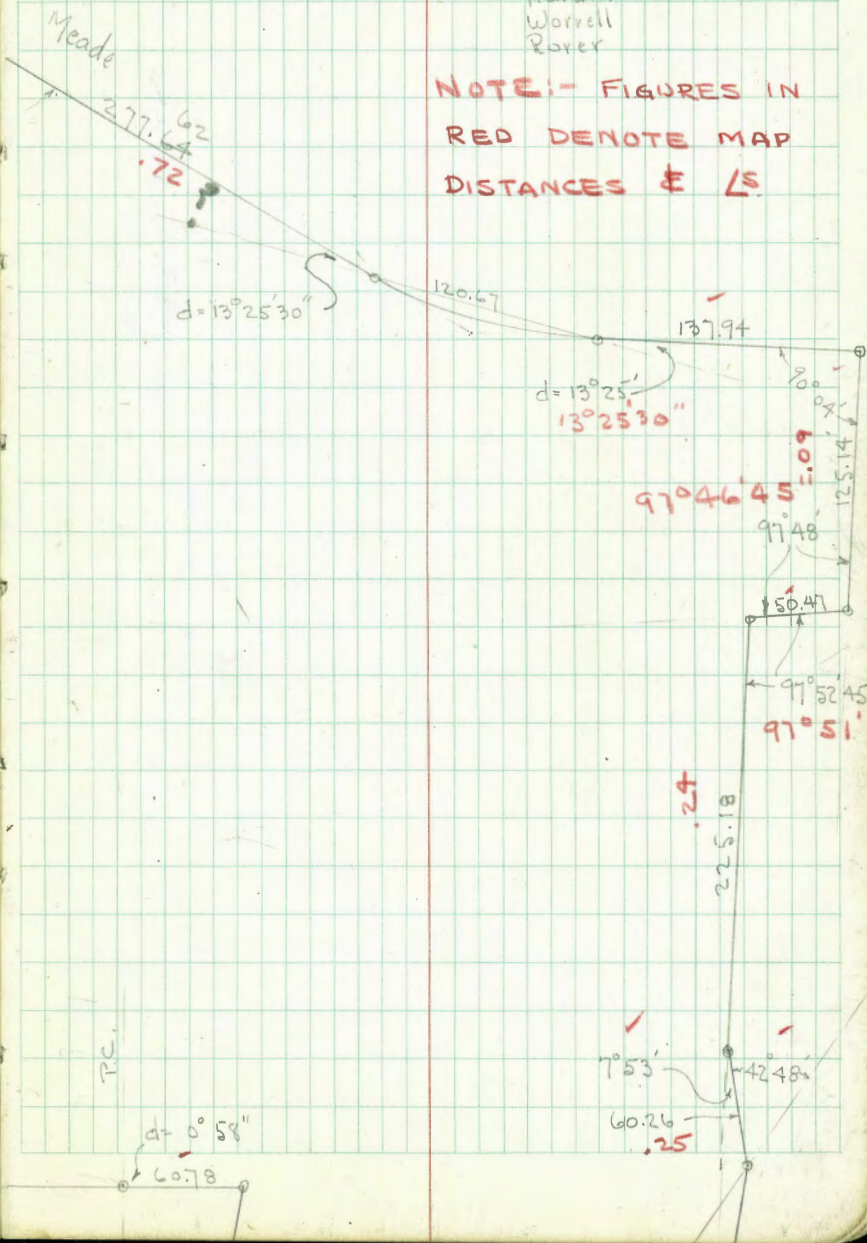 Worrell
Rover
Meade
NOTE:- FIGURES IN
RED DENOTE MAP
DISTANCES & ∠s
277.64
62
.72
?
d=13°25'30"
120.67
137.94
d=13°25'
13°25'30"
90°04'
125.14
.09
97°46'45"
97°48'
50.47
97°52'45
97°51'
.24
225.18
7°53'
42°48'
60.26
.25
P.C.
d= 0°58"
60.78